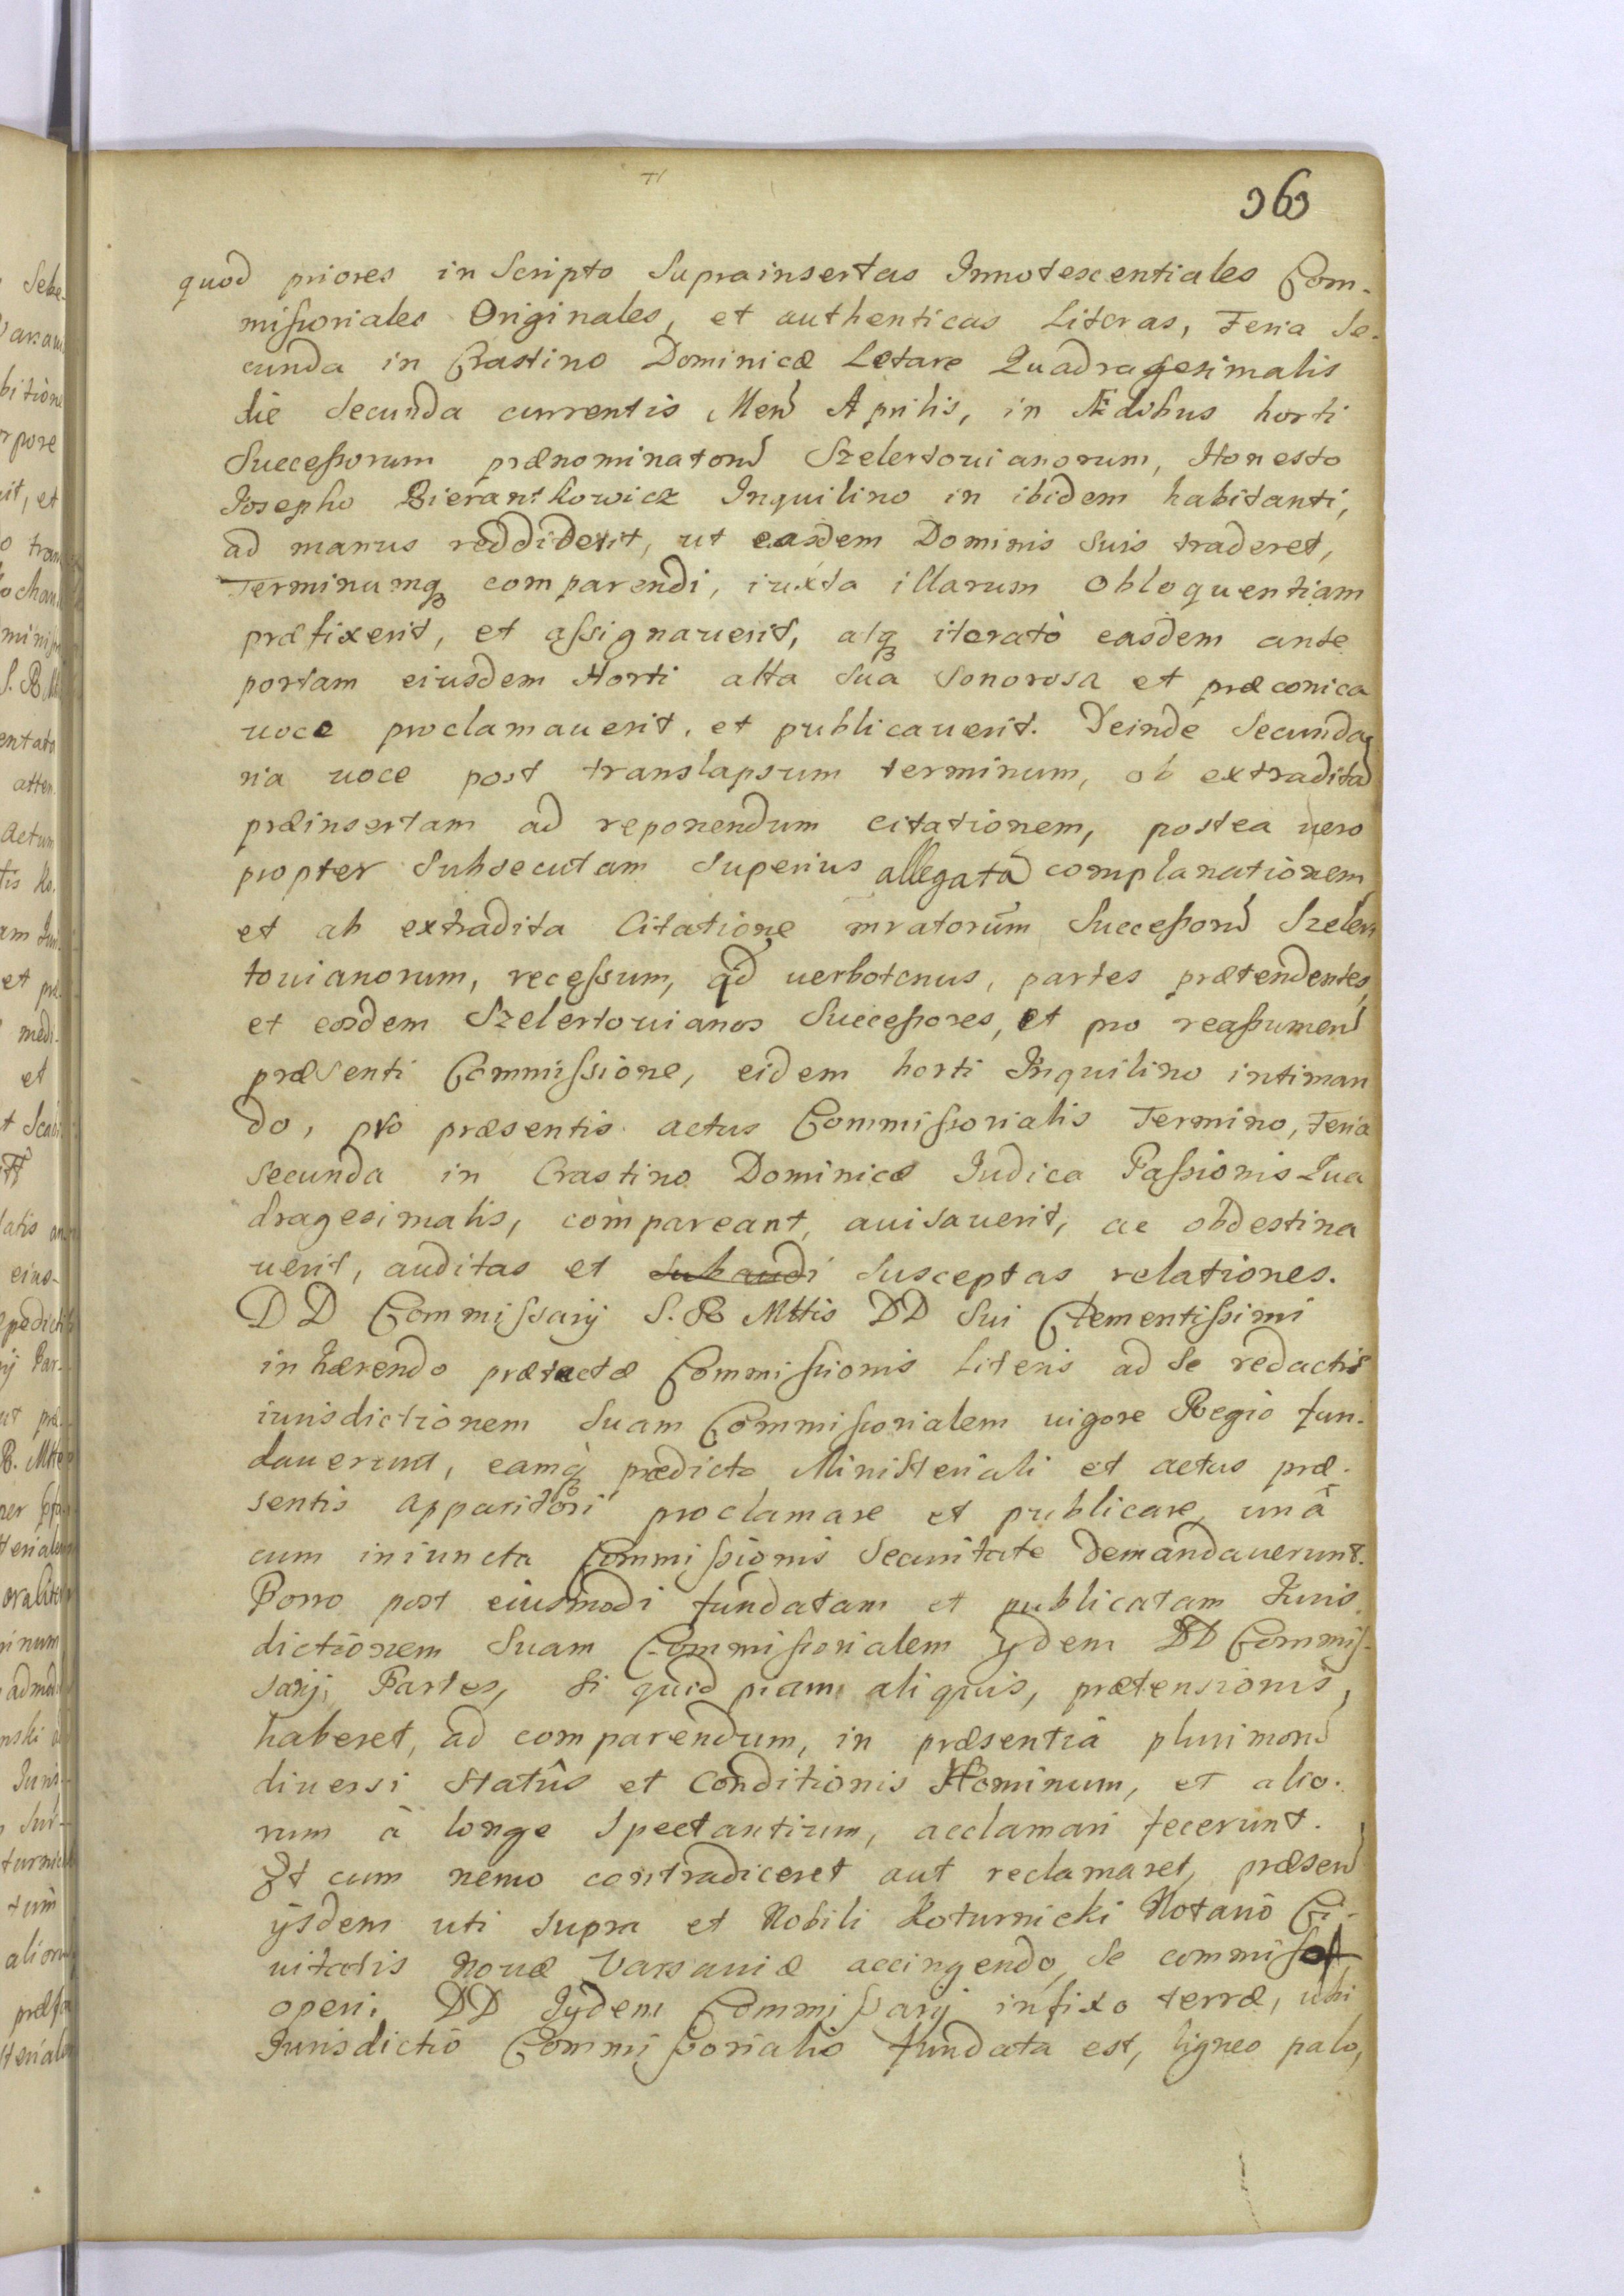 363
quod priores in Scripto Suprainsertas Innotescentiales Com-
missoriales Originales, et authenticas Literas, Feria Se-
cunda in Crastino Dominicæ Letare Quadragesimalis
die Secunda currentis Mens Aprilis, in Ædibus horti
Successorum prænominators Szelertouianorum, Honesto
Josepho Inquilino in ibidem habitanti,
ad manus reddiderit, ut easdem Dominis suis traderet,
Terminumq comparendi, iuxta illarum Obloquentiam
præfixerit, et assignauerit, atq iteratò easdem ante
portam eiusdem Horti alta sua Sonorosa et præconica
uoce proclamauerit, et publicauerit. Deinde Secunda
ria uoce post translapsum terminum, ob extradita
præinsertam ad reponendum citationem, postea uero
propter Subsecutam Superius allegatã complanationem,
et ab extradita Citatione mratorum Successors Szeler
touianorum, recessum, qd uerbotenus, partes prætendentes,
et eosdem Szelertouianos Successores, et pro reassumen
præsenti Commissione, eidem horti Inquilino intiman
do, pro præsentis actus Commissorialis Termino, Feria
Secunda in Crastino Dominicæ Iudica Passionis Qua
dragesimalis, compareant, auisauerit, ac obdestina
uerit, auditas et subaudi susceptas relationes.
DD Commissarij S. R Mttis DD Sui Clementissimi
inhærendo prætactæ Commissionis Literis ad se redactis
iurisdictionem Suam Commissorialem uigore Regio fun-
dauerunt, eamq prædicto Ministeriali et actus præ-
sentis apparitori proclamare et publicare, unâ
cum iniuncta Commissionis Securitate demandauerunt.
Porro post eiusmodi fundatam et publicatam Iuris-
dictionem Suam Commissorialem ijdem DD Commis-
sarij, Partes, si quid piam aliquis, prætensionis,
haberet, ad comparendum, in præsentiâ plurimors
diuersi Statûs et Conditionis Hominum, et alio-
rum à longe Spectantium, acclamari fecerunt.
Et cum nemo contradiceret aut reclamaret, præsen
ijsdem uti supra et Nobili Koturnicki Notario Ci-
uitatis Nouæ Varsauiæ accingendo se commisso
operi, DD Ijdem Commissarij infixo terræ, ubi
Jurisdictio Commissorialis fundata est, ligneo palo,